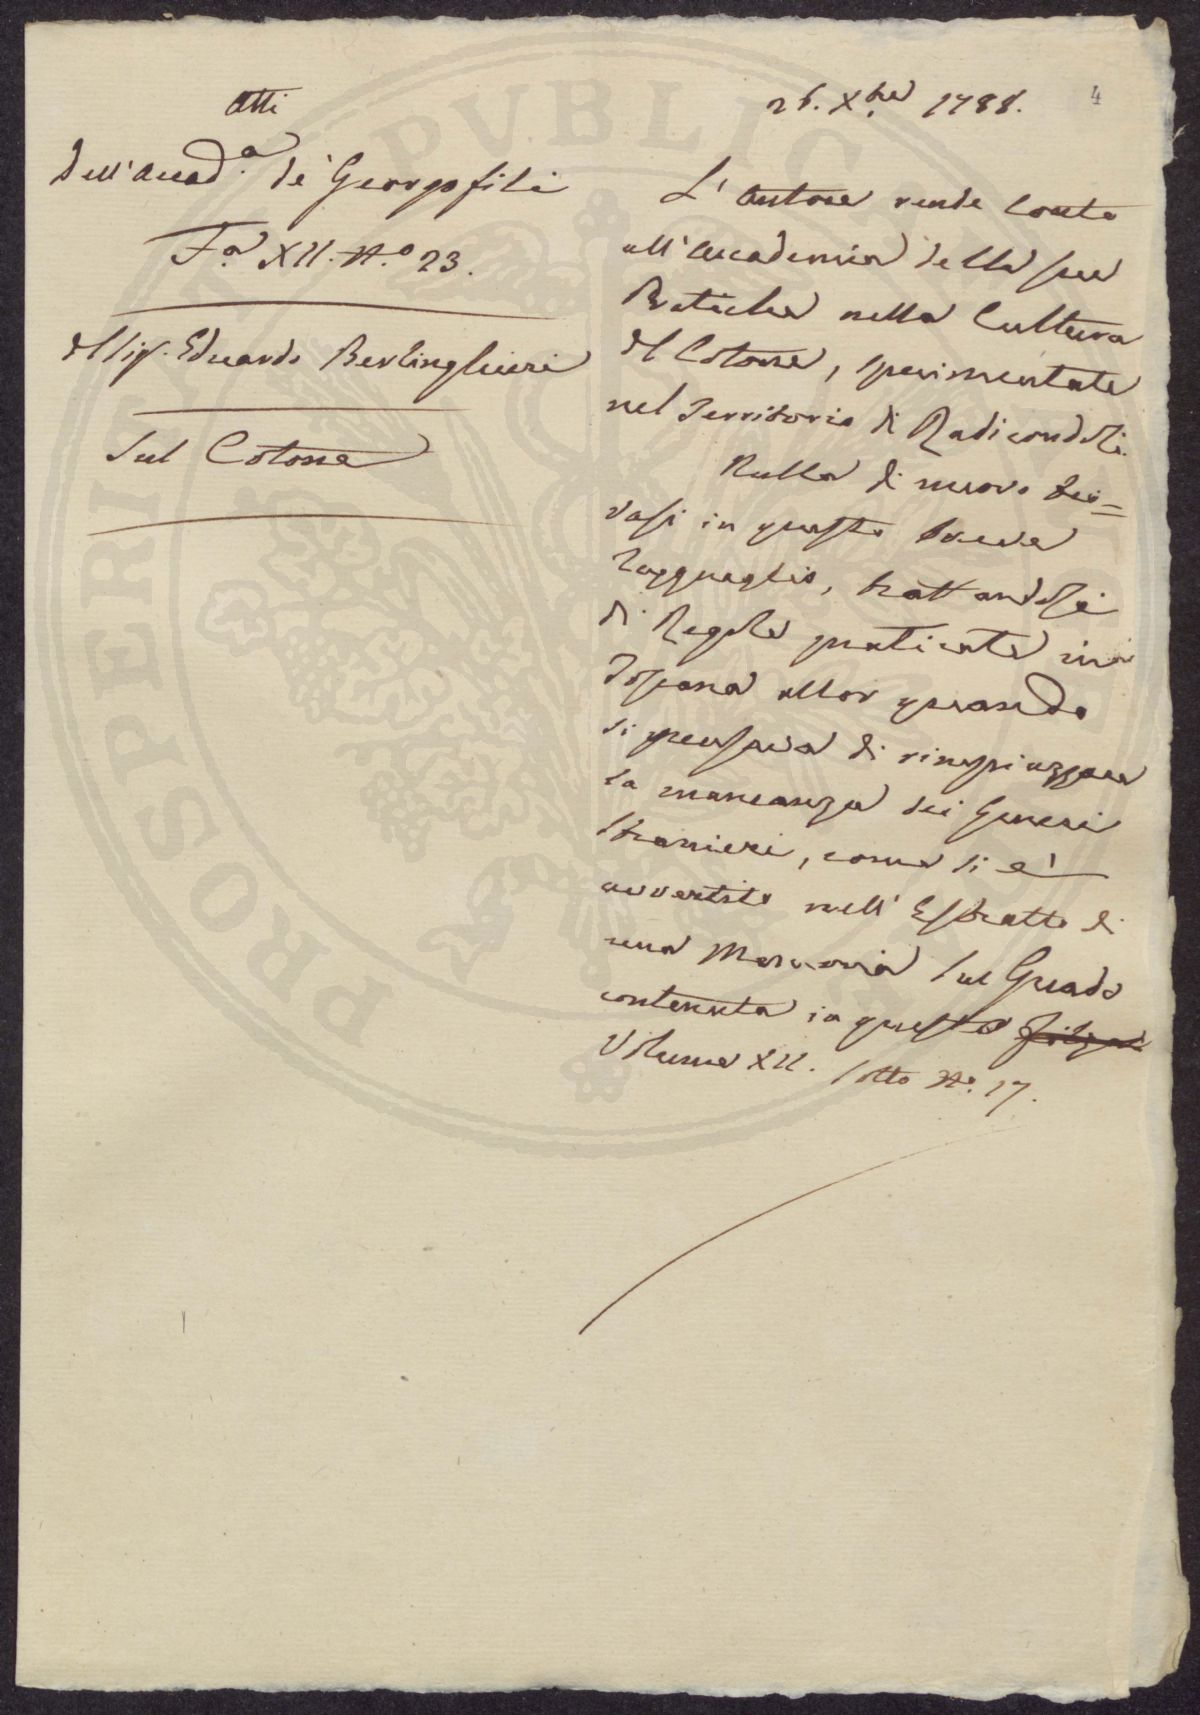 Atti
Dell'Accad.a de' Georgofili
F.a XII. N.o 23.
Del Sig. Eduardo Berlinghieri
Sul Cotone
4
26. Xbre 1788.
L'Autore rende Conto
all'Accademia delle sue
Pratiche nella Cultura
del Cotone, sperimentate
nel Territorio di Radicondoli.
Nulla di nuovo tro=
vasi in questo breve
Ragguaglio, trattandosi
di Regole praticate in
Toscana allor quando
si pensava di rimpiazzare
la mancanza dei Generi
stranieri, come si è
avvertito nell'Estratto di
una Memoria sul Guado
contenuta in questo filza
Volume XII. sotto N.o 17.
PUBLICAE
PROSPERITATI